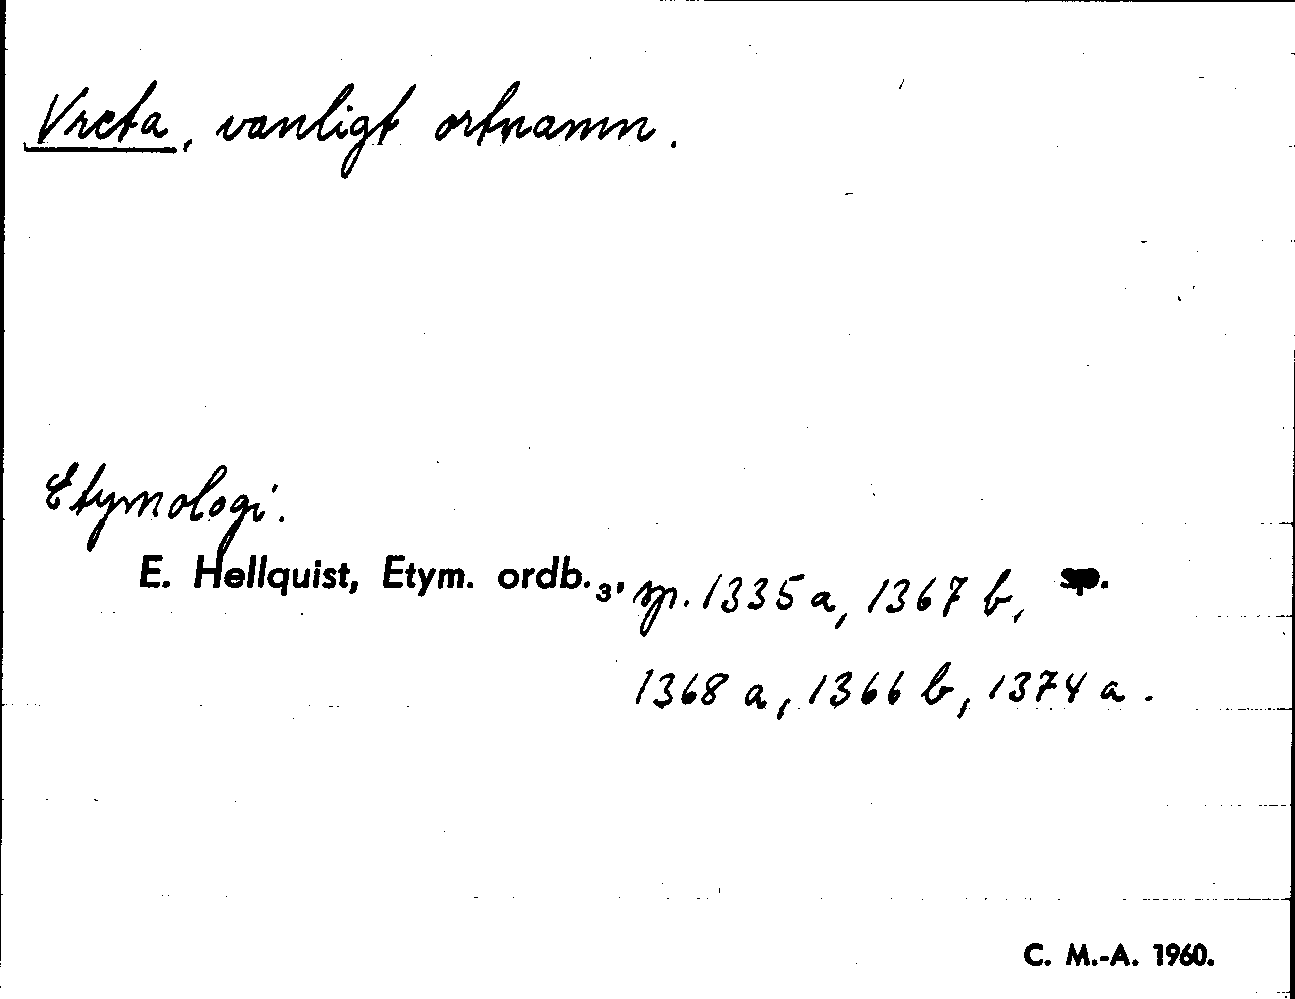 Vreta, vanligt ortnamn.
Etymologi.
E. Hellquist, Etym. ordb.3, sp. 1335 a, 1367 b, sp.
1368 a, 1366 b, 1374 a.
C. M.-A. 1960.